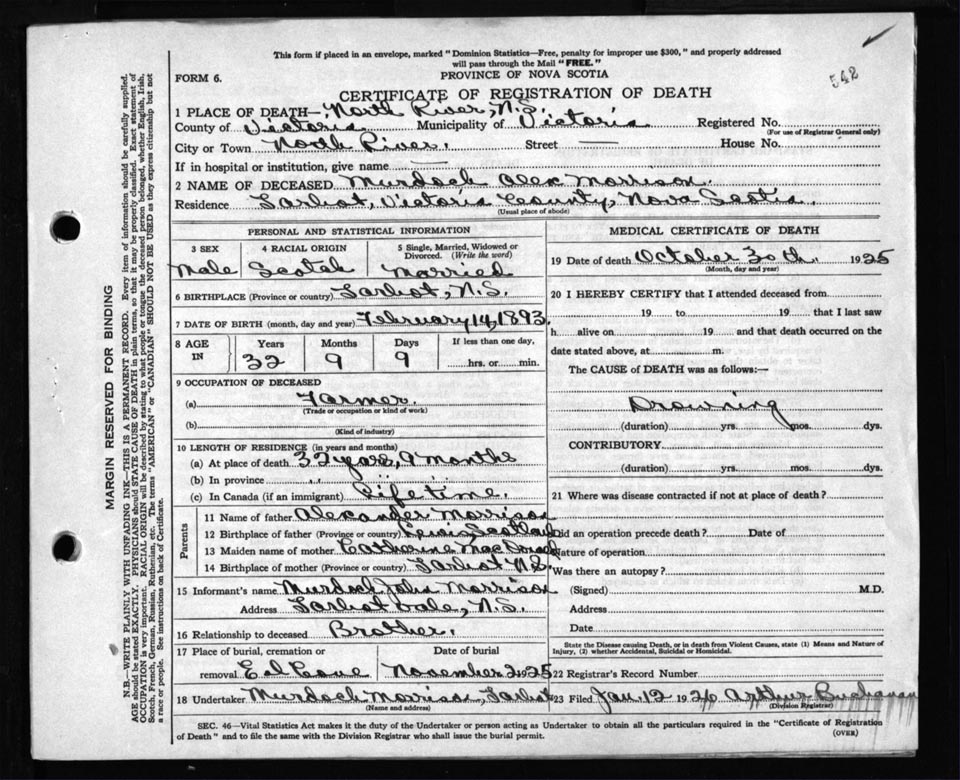 This form if placed in an envelope, marked "Dominion Statistics—Free, penalty for improper use $300," and properly addressed
will pass through the Mail "FREE."
542
FORM 6.
PROVINCE OF NOVA SCOTIA
CERTIFICATE OF REGISTRATION OF DEATH
1 PLACE OF DEATH—North River, N.S.
County of Victoria Municipality of Victoria Registered No.
(For use of Registrar General only)
City or Town North River. Street — House No.
If in hospital or institution, give name —
2 NAME OF DECEASED Murdoch Alex Morrison.
Residence Tarbot, Victoria County, Nova Scotia
(Usual place of abode)
PERSONAL AND STATISTICAL INFORMATION
3 SEX 4 RACIAL ORIGIN 5 Single, Married, Widowed or
Divorced. (Write the word)
Male Scotch Married
6 BIRTHPLACE (Province or country) Tarbot, N.S.
7 DATE OF BIRTH (month, day and year) February 14, 1893.
8 AGE Years Months Days If less than one day,
IN 32 9 9 hrs. or min.
9 OCCUPATION OF DECEASED
(a) Farmer.
(Trade or occupation or kind of work)
(b)
(Kind of industry)
10 LENGTH OF RESIDENCE (in years and months)
(a) At place of death 32 years, 9 months
(b) In province " " "
(c) In Canada (if an immigrant) Life time.
Parents
11 Name of father Alexander Morrison
12 Birthplace of father (Province or country) Lewis, Scotland
13 Maiden name of mother Catherine
14 Birthplace of mother (Province or country) Tarbot N.S.
15 Informant's name Murdoch John Morrison
Address Tarbot Vale, N.S.
16 Relationship to deceased Brother.
17 Place of burial, cremation or Date of burial
removal November 2, 25
18 Undertaker Murdoch Morrison, Tarbot
(Name and address)
MEDICAL CERTIFICATE OF DEATH
19 Date of death October 30th. 1925
(Month, day and year)
20 I HEREBY CERTIFY that I attended deceased from
19 to 19 that I last saw
h alive on 19 and that death occurred on the
date stated above, at m.
The CAUSE of DEATH was as follows:—
Drowning
(duration) yrs. mos. dys.
CONTRIBUTORY
(duration) yrs. mos. dys.
21 Where was disease contracted if not at place of death?
Did an operation precede death? Date of
Nature of operation
Was there an autopsy?
(Signed) M.D.
Address
Date
State the Disease causing Death, or in death from Violent Causes, state (1) Means and Nature of
Injury, (2) whether Accidental, Suicidal or Homicidal.
22 Registrar's Record Number
23 Filed Jan. 12 1926 Arthur Buchanan
(Division Registrar)
SEC. 46—Vital Statistics Act makes it the duty of the Undertaker or person acting as Undertaker to obtain all the particulars required in the "Certificate of Registration
of Death" and to file the same with the Division Registrar who shall issue the burial permit.
(OVER)
MARGIN RESERVED FOR BINDING
N.B.—WRITE PLAINLY WITH UNFADING INK—THIS IS A PERMANENT RECORD. Every item of information should be carefully supplied.
AGE should be stated EXACTLY. PHYSICIANS should STATE CAUSE OF DEATH in plain terms, so that it may be properly classified. Exact statement of
OCCUPATION is very important. RACIAL ORIGIN will be described by stating to what people or tongue the deceased person belonged, whether English, Irish,
Scotch, French, German, Russian, Ruthenian, etc. The terms "AMERICAN" or "CANADIAN" SHOULD NOT BE USED as they express citizenship but not
a race or people. See instructions on back of Certificate.